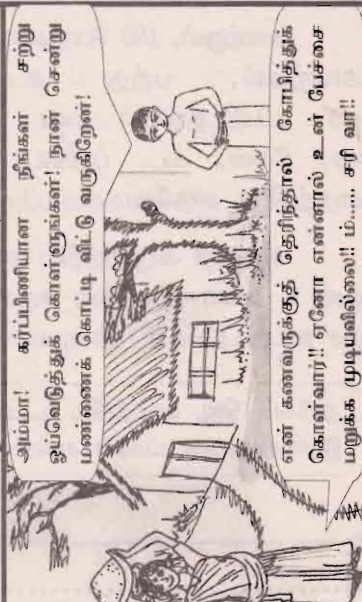 அம்மா! கர்ப்பிணியான நீங்கள் சற்று
ஓய்வெடுத்துக் கொள்ளுங்கள்! நான் சென்று
மண்ணைக் கொட்டி விட்டு வருகிறேன்!
என் கணவருக்குத் தெரிந்தால் கோபித்துக்
கொள்வார்!! ஏனோ என்னால் உன் பேச்சை
மறுக்க முடியவில்லை!! ம்..... சரி வா!!